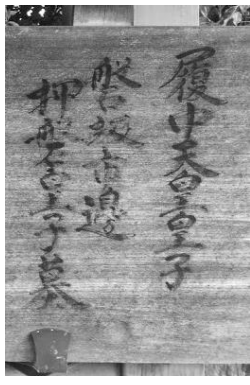 履中天皇皇子
磐坂市邊
押磐皇子墓